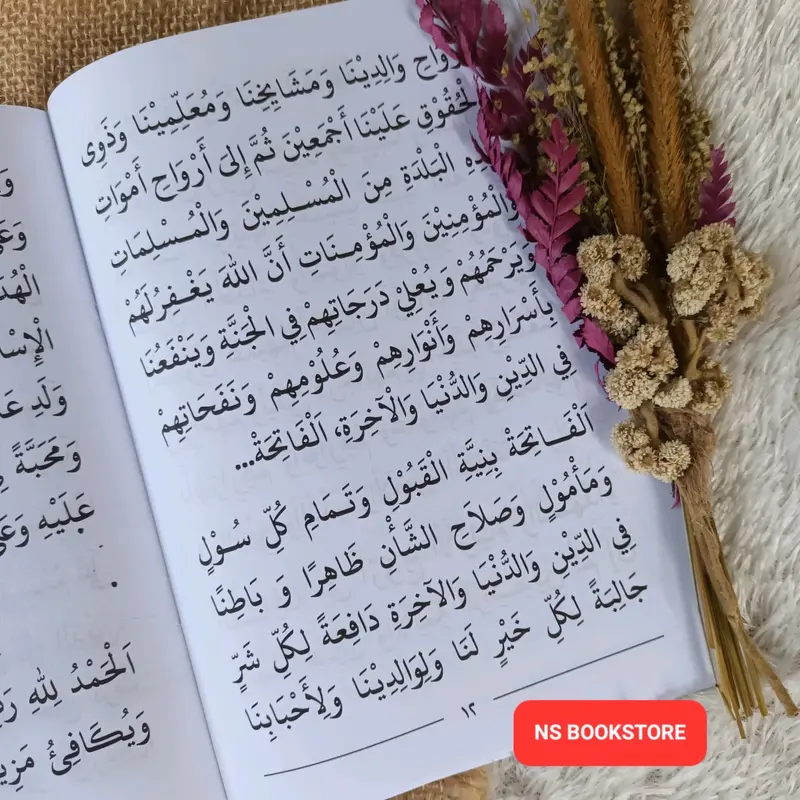 وَاحِ وَالِدِيْنَا وَمَشَايِخِنَا وَمُعَلِّمِيْنَا وَذَوِى
الْحُقُوْقِ عَلَيْنَا أَجْمَعِيْنَ ثُمَّ إِلَى أَرْوَاحِ أَمْوَاتِ
ـذِهِ الْبَلْدَةِ مِنَ الْمُسْلِمِيْنَ وَالْمُسْلِمَاتِ
وَالْمُؤْمِنِيْنَ وَالْمُؤْمِنَاتِ أَنَّ اللهَ يَغْفِرُلَهُمْ
وَيَرْحَمُهُمْ وَيُعْلِيْ دَرَجَاتِهِمْ فِي الْجَنَّةِ وَيَنْفَعُنَا
بِأَسْرَارِهِمْ وَأَنْوَارِهِمْ وَعُلُوْمِهِمْ وَنَفَحَاتِهِمْ
فِي الدِّيْنِ وَالدُّنْيَا وَالْآخِرَةِ، اَلْفَاتِحَةْ...
اَلْفَـاتِحَةْ بِنِيَّةِ الْقَبُوْلِ وَتَمَامِ كُلِّ سُوْلٍ
وَمَأْمُوْلٍ وَصَلَاحِ الشَّأْنِ ظَاهِرًا وَ بَاطِنًا
فِي الدِّيْنِ وَالدُّنْيَا وَالآخِرَةِ دَافِعَةً لِكُلِّ شَرٍّ
جَالِبَةً لِكُلِّ خَيْرٍ لَنَا وَلِوَالِدِيْنَا وَلِأَحْبَابِنَا
١٢
وَ
وَعَ
الْهُدَ
الْإِسَا
وَلَدِ عَ
وَمَحَبَّةً
عَلَيْهِ وَعَ
.
اَلْحَمْدُ لِلّٰهِ رَ
وَيُكَافِئُ مَزِيـ
NS BOOKSTORE